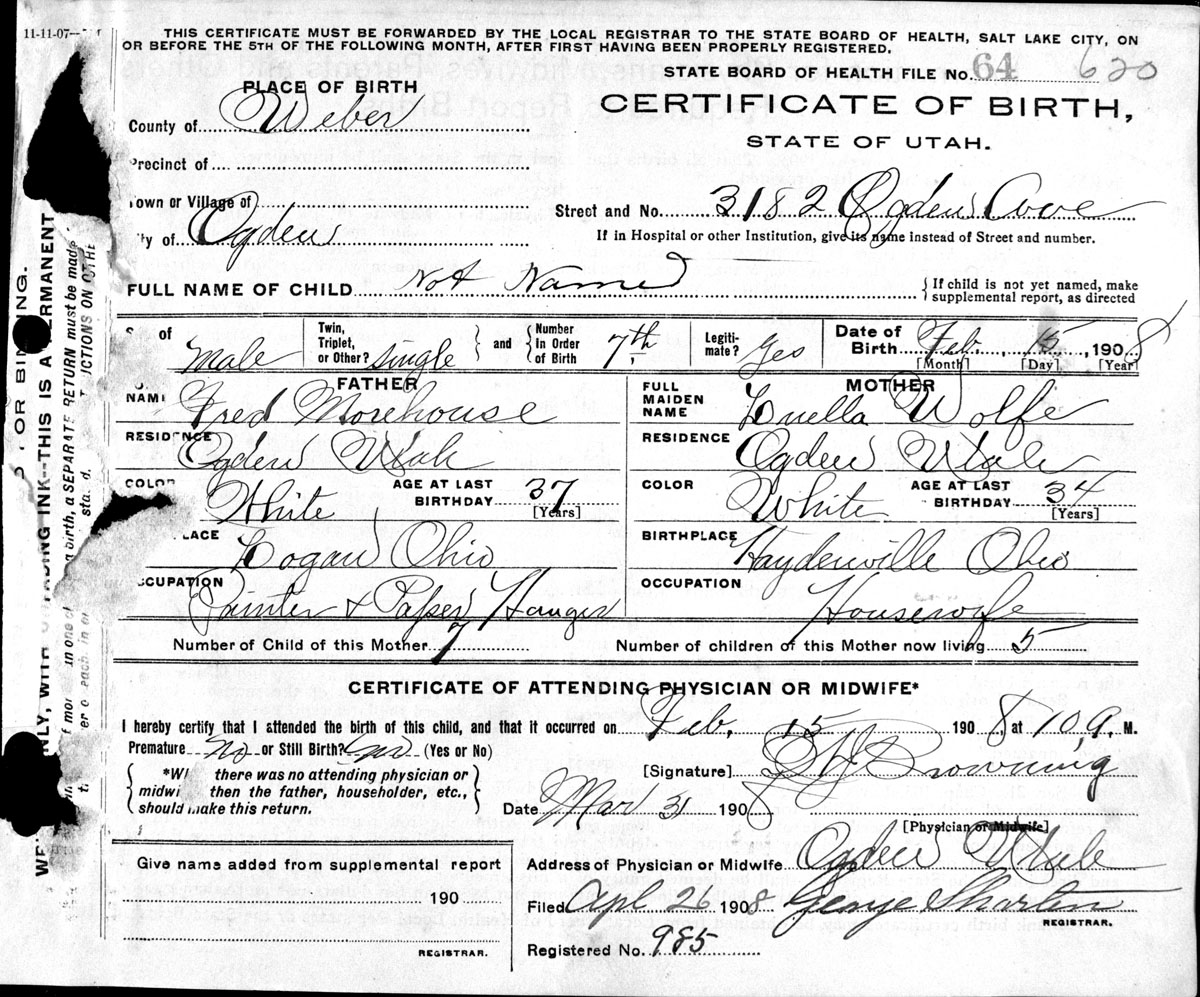 11-11-07
THIS CERTIFICATE MUST BE FORWARDED BY THE LOCAL REGISTRAR TO THE STATE BOARD OF HEALTH, SALT LAKE CITY, ON
OR BEFORE THE 5TH OF THE FOLLOWING MONTH, AFTER FIRST HAVING BEEN PROPERLY REGISTERED.
STATE BOARD OF HEALTH FILE No. 64 620
PLACE OF BIRTH
CERTIFICATE OF BIRTH,
STATE OF UTAH.
County of Weber
Precinct of
Town or Village of
Street and No. 3182 Ogden Ave
City of Ogden
If in Hospital or other Institution, give its name instead of Street and number.
FULL NAME OF CHILD Not Named
If child is not yet named, make
supplemental report, as directed
S of Male
Twin, Triplet, or Other? Single
and
Number in Order of Birth 7th
Legiti- mate? Yes
Date of Birth Feb. 15, 1908
[Month] [Day] [Year]
FATHER
MOTHER
NAME Fred Morehouse
FULL MAIDEN NAME Luella Wolfe
RESIDENCE Ogden Utah
RESIDENCE Ogden Utah
COLOR White
AGE AT LAST BIRTHDAY 37 [Years]
COLOR White
AGE AT LAST BIRTHDAY 34 [Years]
LACE Logan Ohio
BIRTHPLACE Haydenville Ohio
OCCUPATION Painter & Paper Hanger
OCCUPATION Housewife
Number of Child of this Mother 7
Number of children of this Mother now living 5
CERTIFICATE OF ATTENDING PHYSICIAN OR MIDWIFE*
I hereby certify that I attended the birth of this child, and that it occurred on Feb. 15 1908, at 10, a. M.
Premature No or Still Birth? No (Yes or No)
*Wh there was no attending physician or
midwi then the father, householder, etc.,
should make this return.
[Signature] Browning
Date Mar 31 1908
[Physician or Midwife]
Give name added from supplemental report
190
REGISTRAR.
Address of Physician or Midwife Ogden Utah
Filed Apl 26 1908 George Shorten
REGISTRAR.
Registered No. 985
OR BINDING.
NLY, WITH ADING INK--THIS IS A ERMANENT
birth, a SEPARATE RETURN must be made